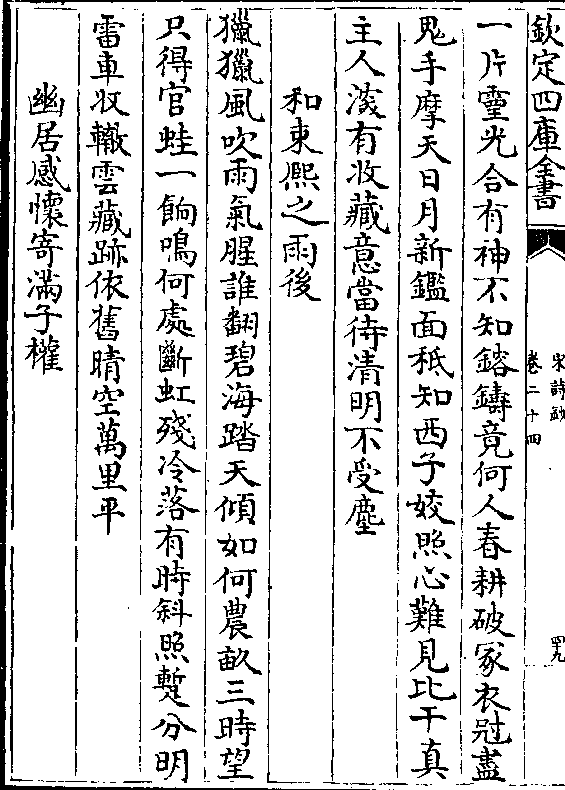 欽定四庫全書
宋詩鈔
卷二十四
四九
一片靈光合有神不知鎔鑄竟何人春耕破冢衣冠盡
鬼手摩天日月新鑑面秪知西子姣照心難見比干真
主人淡有收藏意當待清明不受塵
和束熙之雨後
獵獵風吹雨氣腥誰翻碧海踏天傾如何農畝三時望
只得官蛙一餉鳴何處斷虹殘冷落有時斜照蹔分明
雷車收轍雲藏跡依舊晴空萬里平
幽居感懷寄滿子權